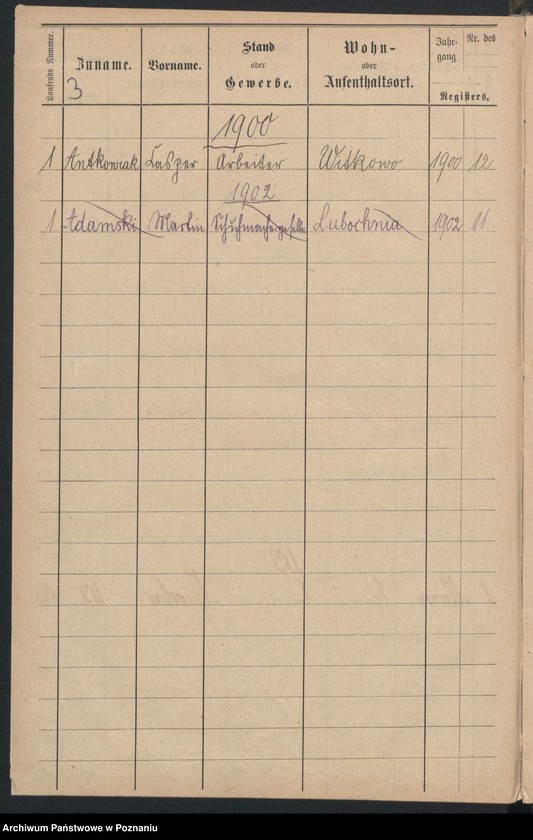 Laufende Nummer. Zuname. Vorname. Stand oder Gewerbe. Wohn- oder Aufenthaltsort. Jahr- gang Nr. des Registers.
3
1900
1 Antkowiak Casper Arbeiter Witkowo 1900 12
1902
1 Adamski Martin Schuhmachergeselle Lubochnia 1902 11
Archiwum Państwowe w Poznaniu